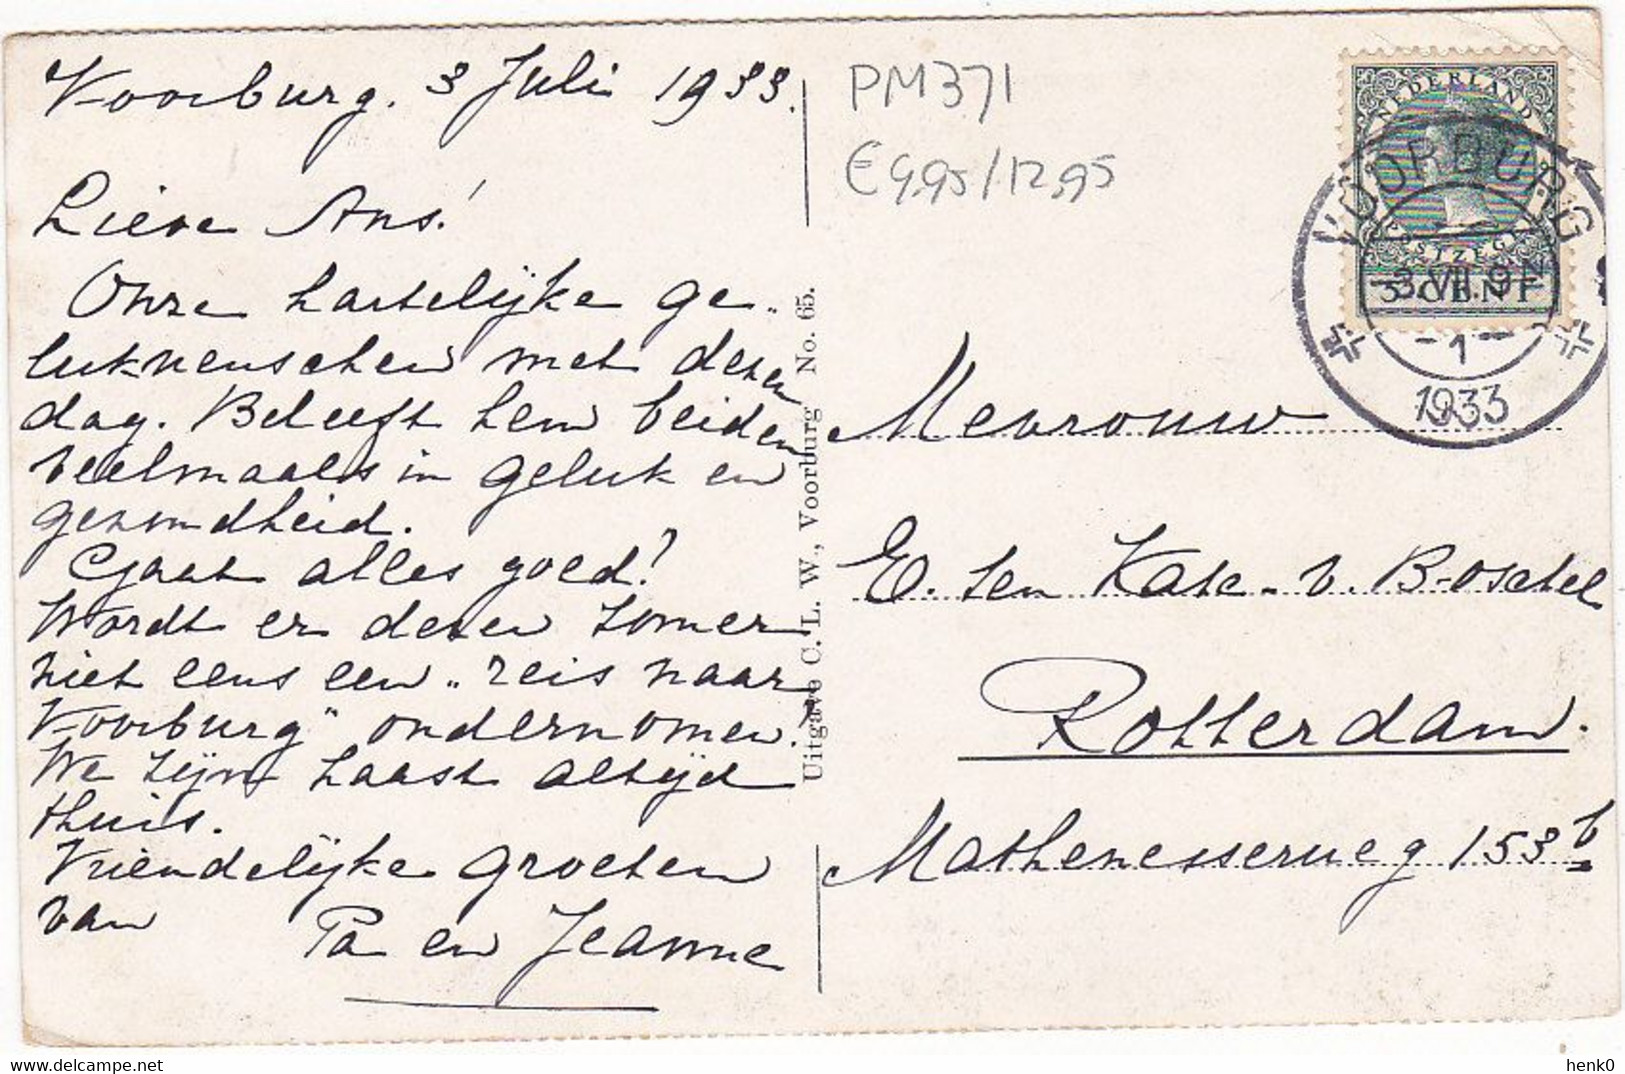 Voorburg. 3 Juli 1933.
Lieve Ans!
Onze hartelijke ge-
lukwenschen met dezen
dag. Beleeft hem beiden
veelmaals in geluk en
gezondheid.
Gaat alles goed?
Wordt er dezen zomer
niet eens een „reis naar
Voorburg" ondernomen?
We zijn haast altijd
thuis.
Vriendelijke groeten
van Pa en Jeanne
Uitgave C. L. W., Voorburg No. 65.
PM371
€ 9,95/12,95
NEDERLAND
POSTZEGEL
5 CENT
VOORBURG
-3.VII.9-
-1-
1933
Mevrouw
E. ten Kate-v. Boxtel
Rotterdam.
Mathenesserweg 153 b
henk0